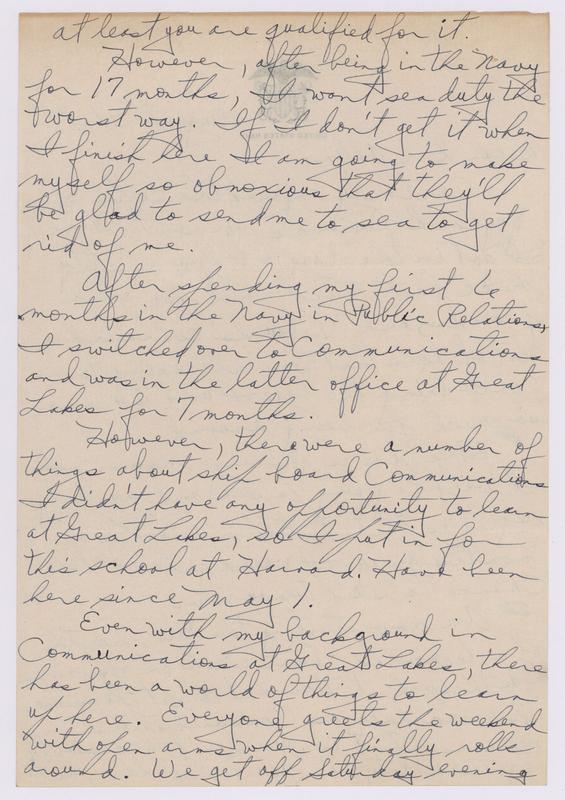 at least you are qualified for it.
However, after being in the Navy
for 17 months, I want sea duty the
worst way. If I don't get it when
I finish here I am going to make
myself so obnoxious that they'll
be glad to send me to sea to get
rid of me.
After spending my first 6
months in the Navy in Public Relations,
I switched over to Communications
and was in the latter office at Great
Lakes for 7 months.
However, there were a number of
things about ship board Communications
I didn't have any opportunity to learn
at Great Lakes, so I put in for
this school at Harvard. Have been
here since May 1.
Even with my background in
Communications at Great Lakes, there
has been a world of things to learn
up here. Everyone greets the weekend
with open arms when it finally rolls
around. We get off Saturday evening